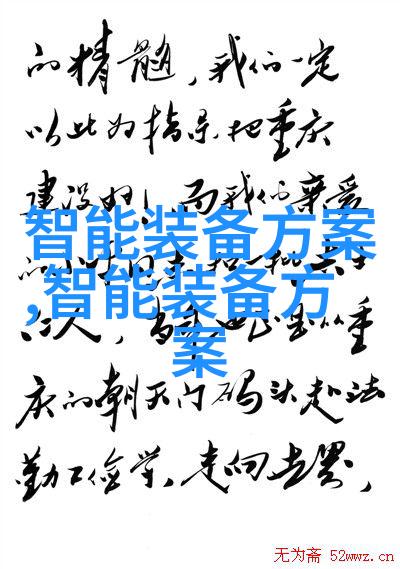 的精髓，我们一定
以此为指导把重庆
建设好！而我们亲爱
智能装备方案
,智能装备方
案
庆的朝天门码头赴法
勤工俭学，走向世界，
无为斋 52wwz.cn